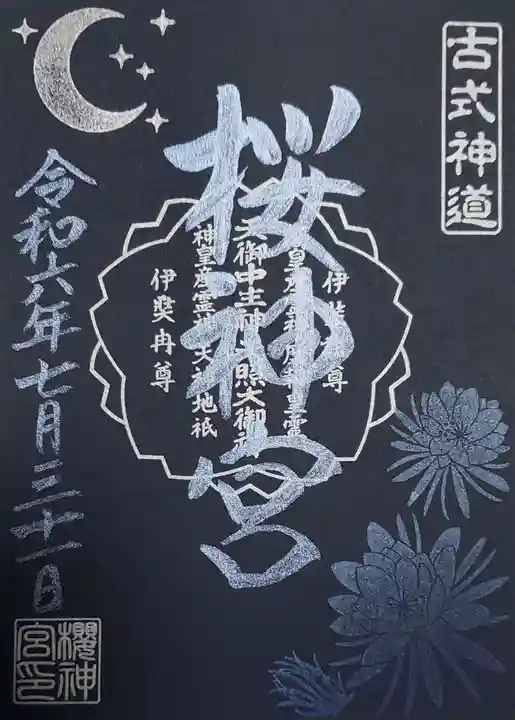 古式神道
桜神宮
伊弉諾尊
天御中主神 天照大御神
神皇産霊神 天神地祇
伊奘冉尊
令和六年七月三十一日
櫻神
宮印